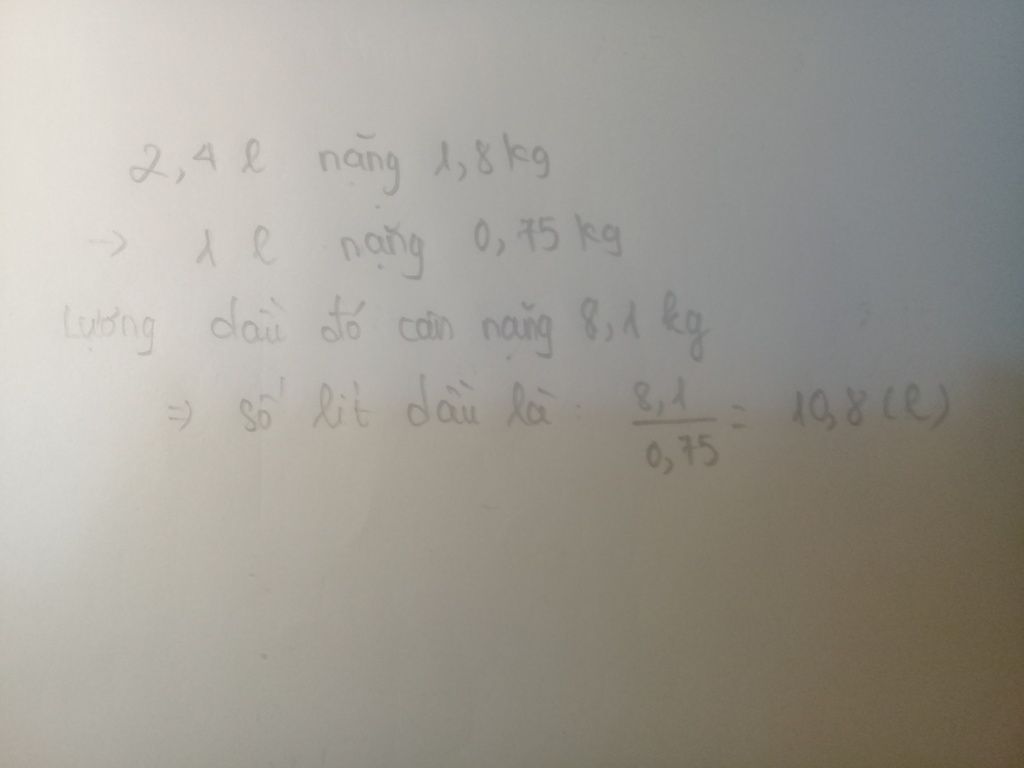 2,4 l nặng 1,8 kg
-> 1 l nặng 0,75 kg
Lượng dầu đó cân nặng 8,1 kg
=> số lít dầu là: 8,1/0,75 = 10,8 (l)